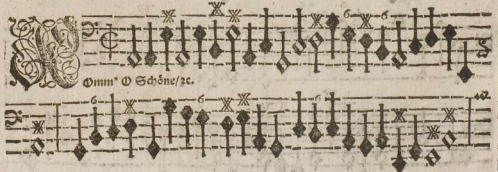 6 6
KOmm' O Schöne/ ꝛc.
6 6 6